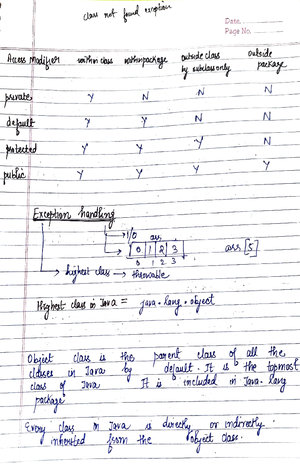 class not found exception
Date.............
Page No. ...........
Access Modifier within class within package outside class by subclass only outside package
private Y N N N
default Y Y N N
protected Y Y Y N
public Y Y Y Y
Exception handling
I/O arr
0 1 2 3 arr[5]
0 1 2 3
highest class → throwable
Highest class in Java = java.lang.object
Object class is the parent class of all the
classes in Java by default. It is the topmost
class of Java It is included in Java.lang
package
Every class in Java is directly or indirectly
inherited from the object class.